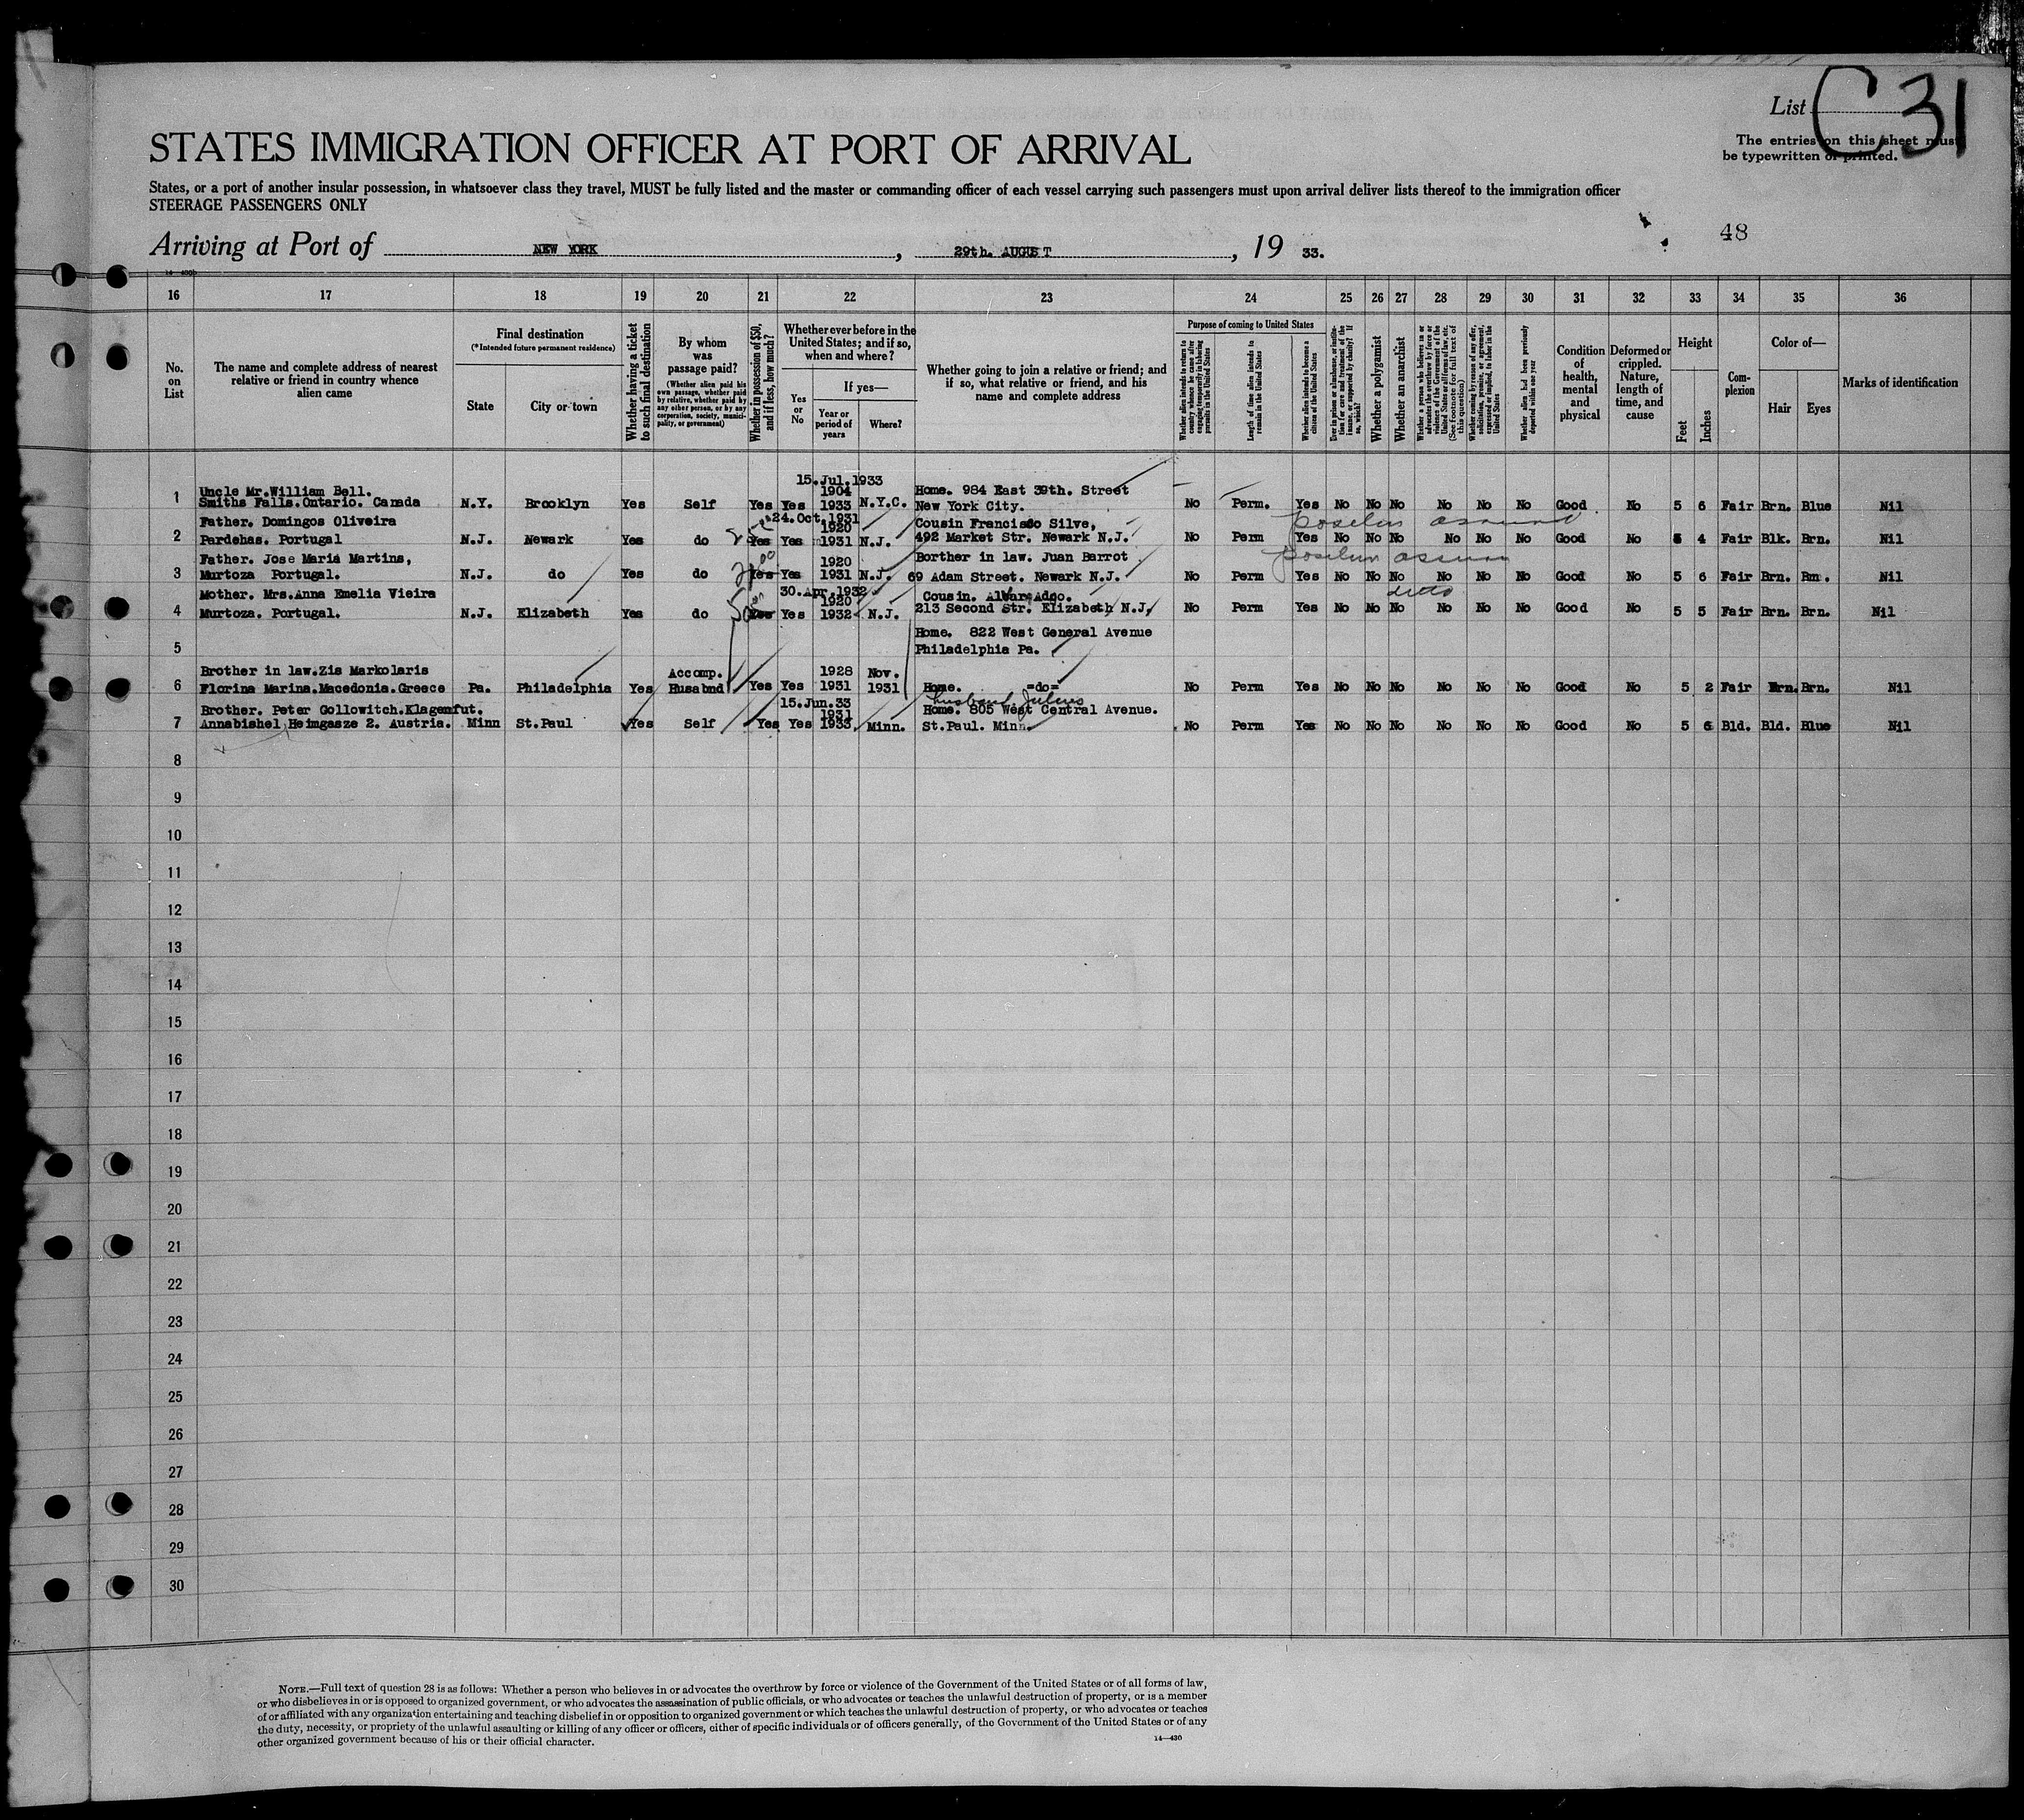 List C31
The entries on this sheet must
be typewritten or printed.
STATES IMMIGRATION OFFICER AT PORT OF ARRIVAL
States, or a port of another insular possession, in whatsoever class they travel, MUST be fully listed and the master or commanding officer of each vessel carrying such passengers must upon arrival deliver lists thereof to the immigration officer
STEERAGE PASSENGERS ONLY
48
Arriving at Port of NEW YORK, 29th. AUGUST, 19 33.
16 17 18 19 20 21 22 23 24 25 26 27 28 29 30 31 32 33 34 35 36
No. on List
The name and complete address of nearest relative or friend in country whence alien came
Final destination
(*Intended future permanent residence)
State
City or town
Whether having a ticket to such final destination
By whom was passage paid?
(Whether alien paid his own passage, whether paid by relative, whether paid by any other person, or by any corporation, society, municipality, or government)
Whether in possession of $50, and if less, how much?
Whether ever before in the United States; and if so, when and where?
Yes or No
If yes—
Year or period of years
Where?
Whether going to join a relative or friend; and if so, what relative or friend, and his name and complete address
Purpose of coming to United States
Whether alien intends to return to country whence he came after engaging temporarily in laboring pursuits in the United States
Length of time alien intends to remain in the United States
Whether alien intends to become a citizen of the United States
Ever in prison or almshouse, or institution for care and treatment of the insane, or supported by charity? If so, which?
Whether a polygamist
Whether an anarchist
Whether a person who believes in or advocates the overthrow by force or violence of the Government of the United States or all forms of law, etc. (See footnote for full text of this question)
Whether coming by reason of any offer, solicitation, promise, or agreement, expressed or implied, to labor in the United States
Whether alien had been previously deported within one year
Condition of health, mental and physical
Deformed or crippled. Nature, length of time, and cause
Height
Feet
Inches
Complexion
Color of—
Hair
Eyes
Marks of identification
15.Jul.1933
Uncle Mr.William Bell. 1904 Home. 984 East 39th. Street
1 Smiths Falls.Ontario. Canada N.Y. Brooklyn Yes Self Yes Yes 1933 N.Y.C. New York City. No Perm. Yes No No No No No No Good No 5 6 Fair Brn. Blue Nil
24.Oct.1931
Father. Domingos Oliveira 1920 Cousin Francisdo Silve,
2 Pardehas. Portugal N.J. Newark Yes do Yes Yes 1931 N.J. 492 Market Str. Newark N.J. No Perm Yes No No No No No No Good No 5 4 Fair Blk. Brn. Nil
Father. Jose Maria Martins, 1920 Borther in law. Juan Barrot
3 Murtoza Portugal. N.J. do Yes do Yes Yes 1931 N.J. 69 Adam Street. Newark N.J. No Perm Yes No No No No No No Good No 5 6 Fair Brn. Brn. Nil
30.Apr.1932 ditto
Mother. Mrs.Anna Emelia Vieira 1920 Cousin.
4 Murtoza. Portugal. N.J. Elizabeth Yes do Yes Yes 1932 N.J. 213 Second Str. Elizabeth N.J. No Perm Yes No No No No No No Good No 5 5 Fair Brn. Brn. Nil
Home. 822 West General Avenue
5 Philadelphia Pa.
Brother in law.Zis Markolaris Accomp. 1928 Nov.
6 Florina Marina.Macedonia.Greece Pa. Philadelphia Yes Husabnd Yes Yes 1931 1931 Home. =do= No Perm Yes No No No No No No Good No 5 2 Fair Brn. Brn. Nil
15.Jun.33 husband Julius
Brother. Peter Gollowitch.Klagenfut. 1931 Home. 805 West Central Avenue.
7 Annabishel Heimgasze 2. Austria. Minn St.Paul Yes Self Yes Yes 1933 Minn. St.Paul. Minn. No Perm Yes No No No No No No Good No 5 6 Bld. Bld. Blue Nil
8
9
10
11
12
13
14
15
16
17
18
19
20
21
22
23
24
25
26
27
28
29
30
NOTE.—Full text of question 28 is as follows: Whether a person who believes in or advocates the overthrow by force or violence of the Government of the United States or of all forms of law,
or who disbelieves in or is opposed to organized government, or who advocates the assassination of public officials, or who advocates or teaches the unlawful destruction of property, or is a member
of or affiliated with any organization entertaining and teaching disbelief in or opposition to organized government or which teaches the unlawful destruction of property, or who advocates or teaches
the duty, necessity, or propriety of the unlawful assaulting or killing of any officer or officers, either of specific individuals or of officers generally, of the Government of the United States or of any
other organized government because of his or their official character.
14—430